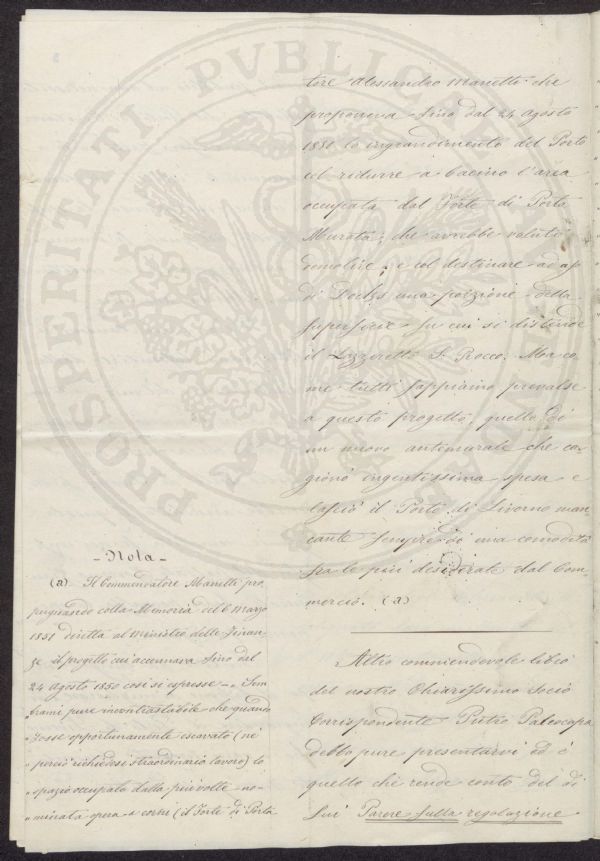 tore Alessandro Manetti che
proponeva sino dal 24 Agosto
1851 lo ingrandimento del Porto
col ridurre a bacino l'area
occupata dal Forte di Porta
Murata, che avrebbe voluto
demolire, e col destinare ad
di Docks una porzione della
superficie su cui si distende
il Lazzeretto S. Rocco. Ma co,
me tutti sappiamo prevalse
a questo progetto, quello di
un nuovo antemurale che ca,
gionò ingentissima spesa e
lasciò il Porto di Livorno man,
cante sempre di una comodità
fra le più desiderate dal Com,
mercio. (a)
Altro commendevole libro
del nostro Chiarissimo Socio
Corrispondente Pietro Paleocapa
debbo pure presentarvi ed è
quello che rende conto del di
lui Parere sulla regolazione
- Nota -
(a) Il Commendatore Manetti pro,
pugnando colla Memoria del 6 Marzo
1851 diretta al Ministro delle Finan,
ze il progetto cui accennava sino dal
24 Agosto 1850 così si espresse -„ Sem
„brami pure incontrastabile che quando
„fosse opportunamente escavato (né
„perciò richiedesi straordinario lavoro) lo
„spazio occupato dalla più volte no-
„minata opera a corni (il Forte di Porta
PROSPERITATI PVBLICAE